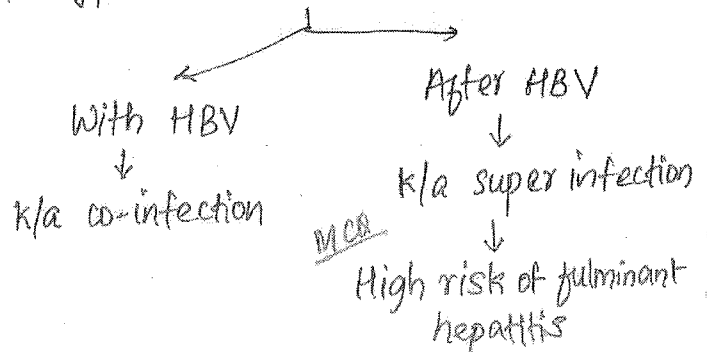 With HBV
↓
k/a co-infection
After HBV
↓
k/a super infection
↓
MCQ
High risk of fulminant
hepatitis